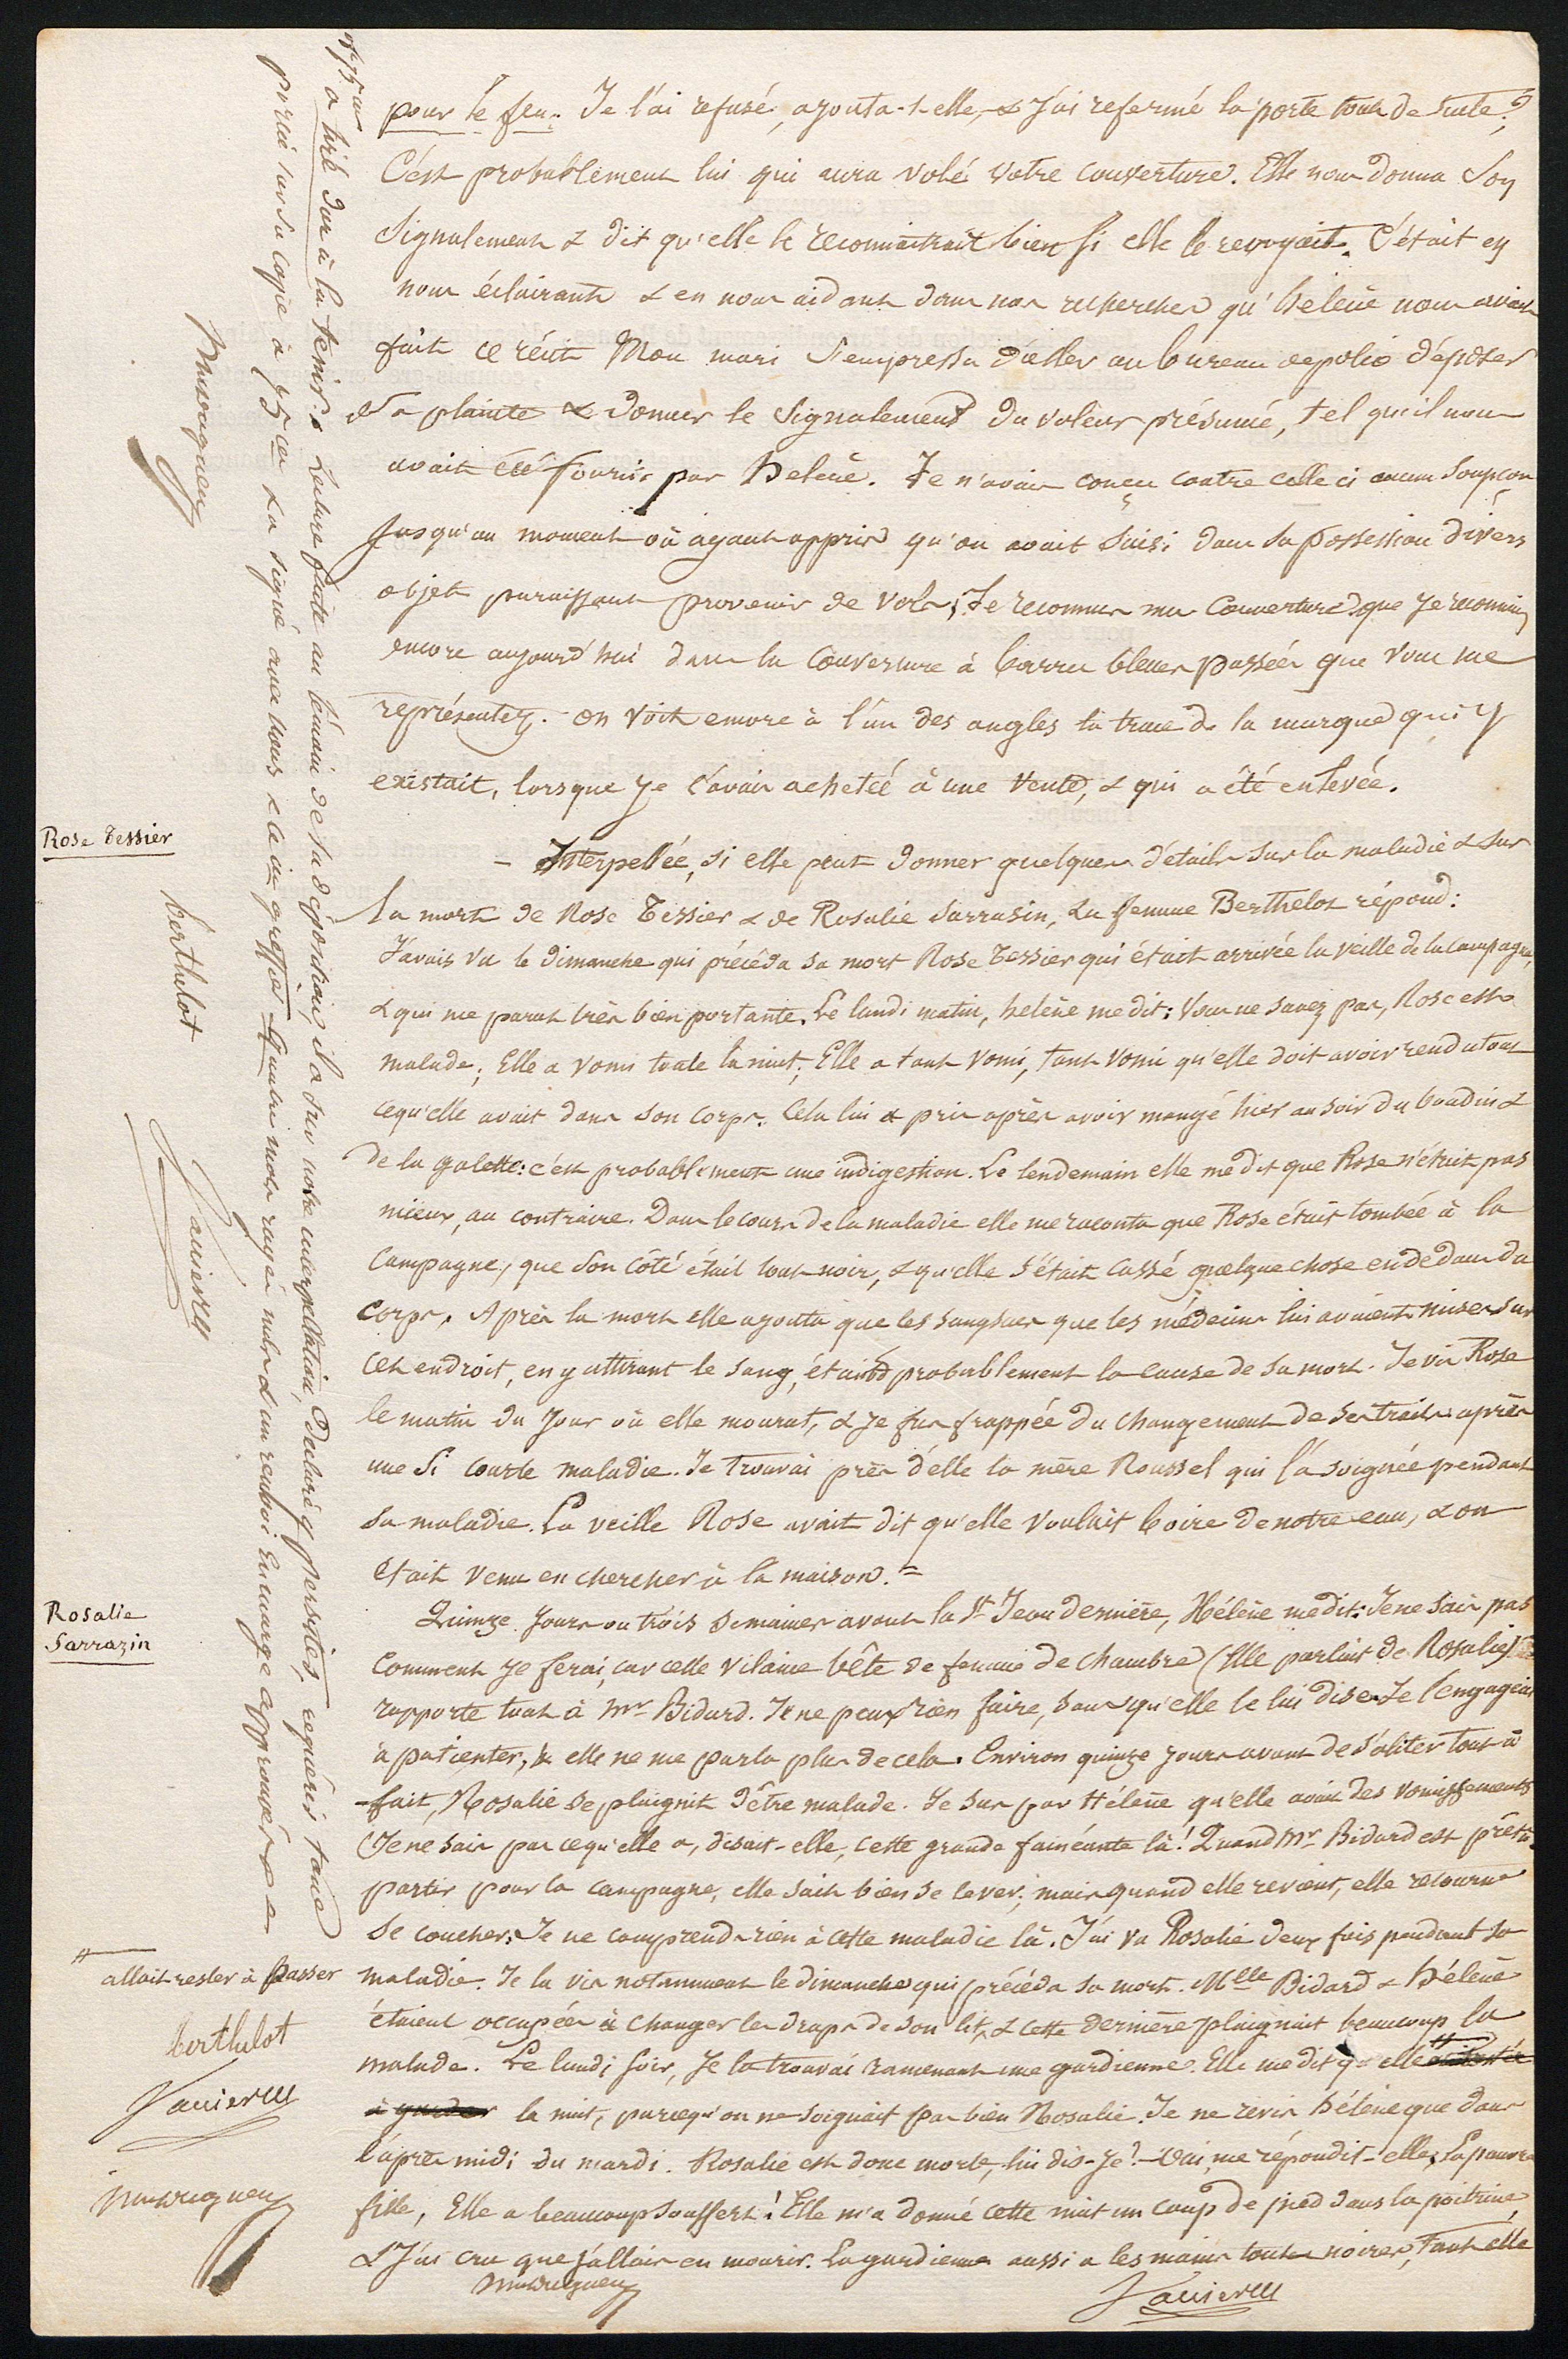 pour le feu. Je l'ai refusé, ajouta-t-elle, & j'ai refermé la porte tout de suite.
C'est probablement lui qui aura volé votre couverture. Elle nous donna son
signalement & dit qu'elle le reconnaitrait bien si elle le revoyait. C'était en
nous éclairant & en nous aidant dans nos recherches qu'hélène nous avait
fait ce récit. Mon mari s'empressa d'aller au bureau de police déposer
sa plainte & donner le signalement du voleur présumé, tel qu'il nous
avait été fourni par helène. Je n'avais conçu contre celle ci aucun soupçon
jusqu'au moment où ayant appris qu'on avait saisi dans sa possession divers
objets paraissant provenir de vols, Je reconnus ma couverture que je reconnais
encore aujourd'hui dans la couverture à barres bleues passées que vous me
représentez. On voit encore à l'un des angles la trace de la marque qui y
existait, lorsque je l'avais achetée à une vente, & qui a été enlevée.
Rose Tessier
- Interpellée, si elle peut donner quelques détails sur la maladie & sur
la mort de Rose Tessier & de Rosalie Sarrasin, La femme Berthelot répond:
J'avais vu le dimanche qui précéda sa mort Rose Tessier qui était arrivée la veille de la campagne,
& qui me parut très bien portante. Le lundi matin, helène me dit: Vous ne savez pas, Rose est
malade; Elle a vomi toute la nuit; Elle a tant vomi, tant vomi qu'elle doit avoir rendu tout
ce qu'elle avait dans son corps. Cela lui a pris après avoir mangé hier au soir du boudin &
de la galette: c'est probablement une indigestion. Le lendemain elle me dit que Rose n'était pas
mieux, au contraire. Dans le cours de la maladie elle me raconta que Rose était tombée à la
campagne, que son côté était tout noir, & qu'elle s'était cassé quelque chose en dedans du
corps. Après la mort elle ajouta que les sangsues que les médecins lui avaient mises sur
cet endroit, en y attirant le sang, étaient probablement la cause de sa mort. Je vis Rose
le matin du jour où elle mourut, & je fus frappée du changement de ses traits après
une si courte maladie. Je trouvai près d'elle la mère Roussel qui l'a soignée pendant
sa maladie. La veille Rose avait dit qu'elle voulait boire de notre eau, & on
était venu en chercher à la maison. =
Rosalie
Sarrazin
Quinze jours ou trois semaines avant la St Jean dernière, Hélène me dit: Je ne sais pas
comment je ferai, car cette vilaine bête de femme de chambre (Elle parlait de Rosalie)
rapporte tout à Mr Bidard. Je ne peux rien faire, sans qu'elle le lui dise. Je l'engageai
à patienter, & elle ne me parla plus de cela. Environ quinze jours avant de s'aliter tout à
-fait, Rosalie se plaignit d'être malade. Je sus par Hélène qu'elle avait des vomissements
Je ne sais pas ce qu'elle a, disait-elle, cette grande fainéante là! Quand Mr Bidard est prêt à
partir pour la campagne, elle sait bien se lever; mais quand elle revient, elle retourne
se coucher: Je ne comprends rien à cette maladie là. J'ai vu Rosalie deux fois pendant sa
maladie. Je la vis notamment le dimanche qui précéda sa mort. Melle Bidard & hélène
étaient occupées à changer les draps de son lit, & cette dernière plaignait beaucoup la
malade. Le lundi soir, Je la trouvai ramenant une gardienne. Elle me dit qu'elle
à garder la nuit, parce qu'on ne soignait pas bien Rosalie. Je ne revis hélène que dans
l'après midi du mardi. Rosalie est donc morte, lui dis-je? - Oui, me répondit-elle, La pauvre
fille, Elle a beaucoup souffert! Elle m'a donné cette nuit un coup de pied dans la poitrine,
& j'ai cru que j'allais en mourir. La gardienne aussi a les mains toutes noires, tant elle
allait rester à passer
berthelot
Vannier
a tiré dur à la tenir. Lecture faite au témoin de sa déposition, Il a sur notre interpellation, Déclaré y persister, requéris taxe
portée sur sa copie à 75 ces & a signé avec nous & le dit greffier Quatre mots rayés nuls & un renvoi en marge approuvés
berthelot